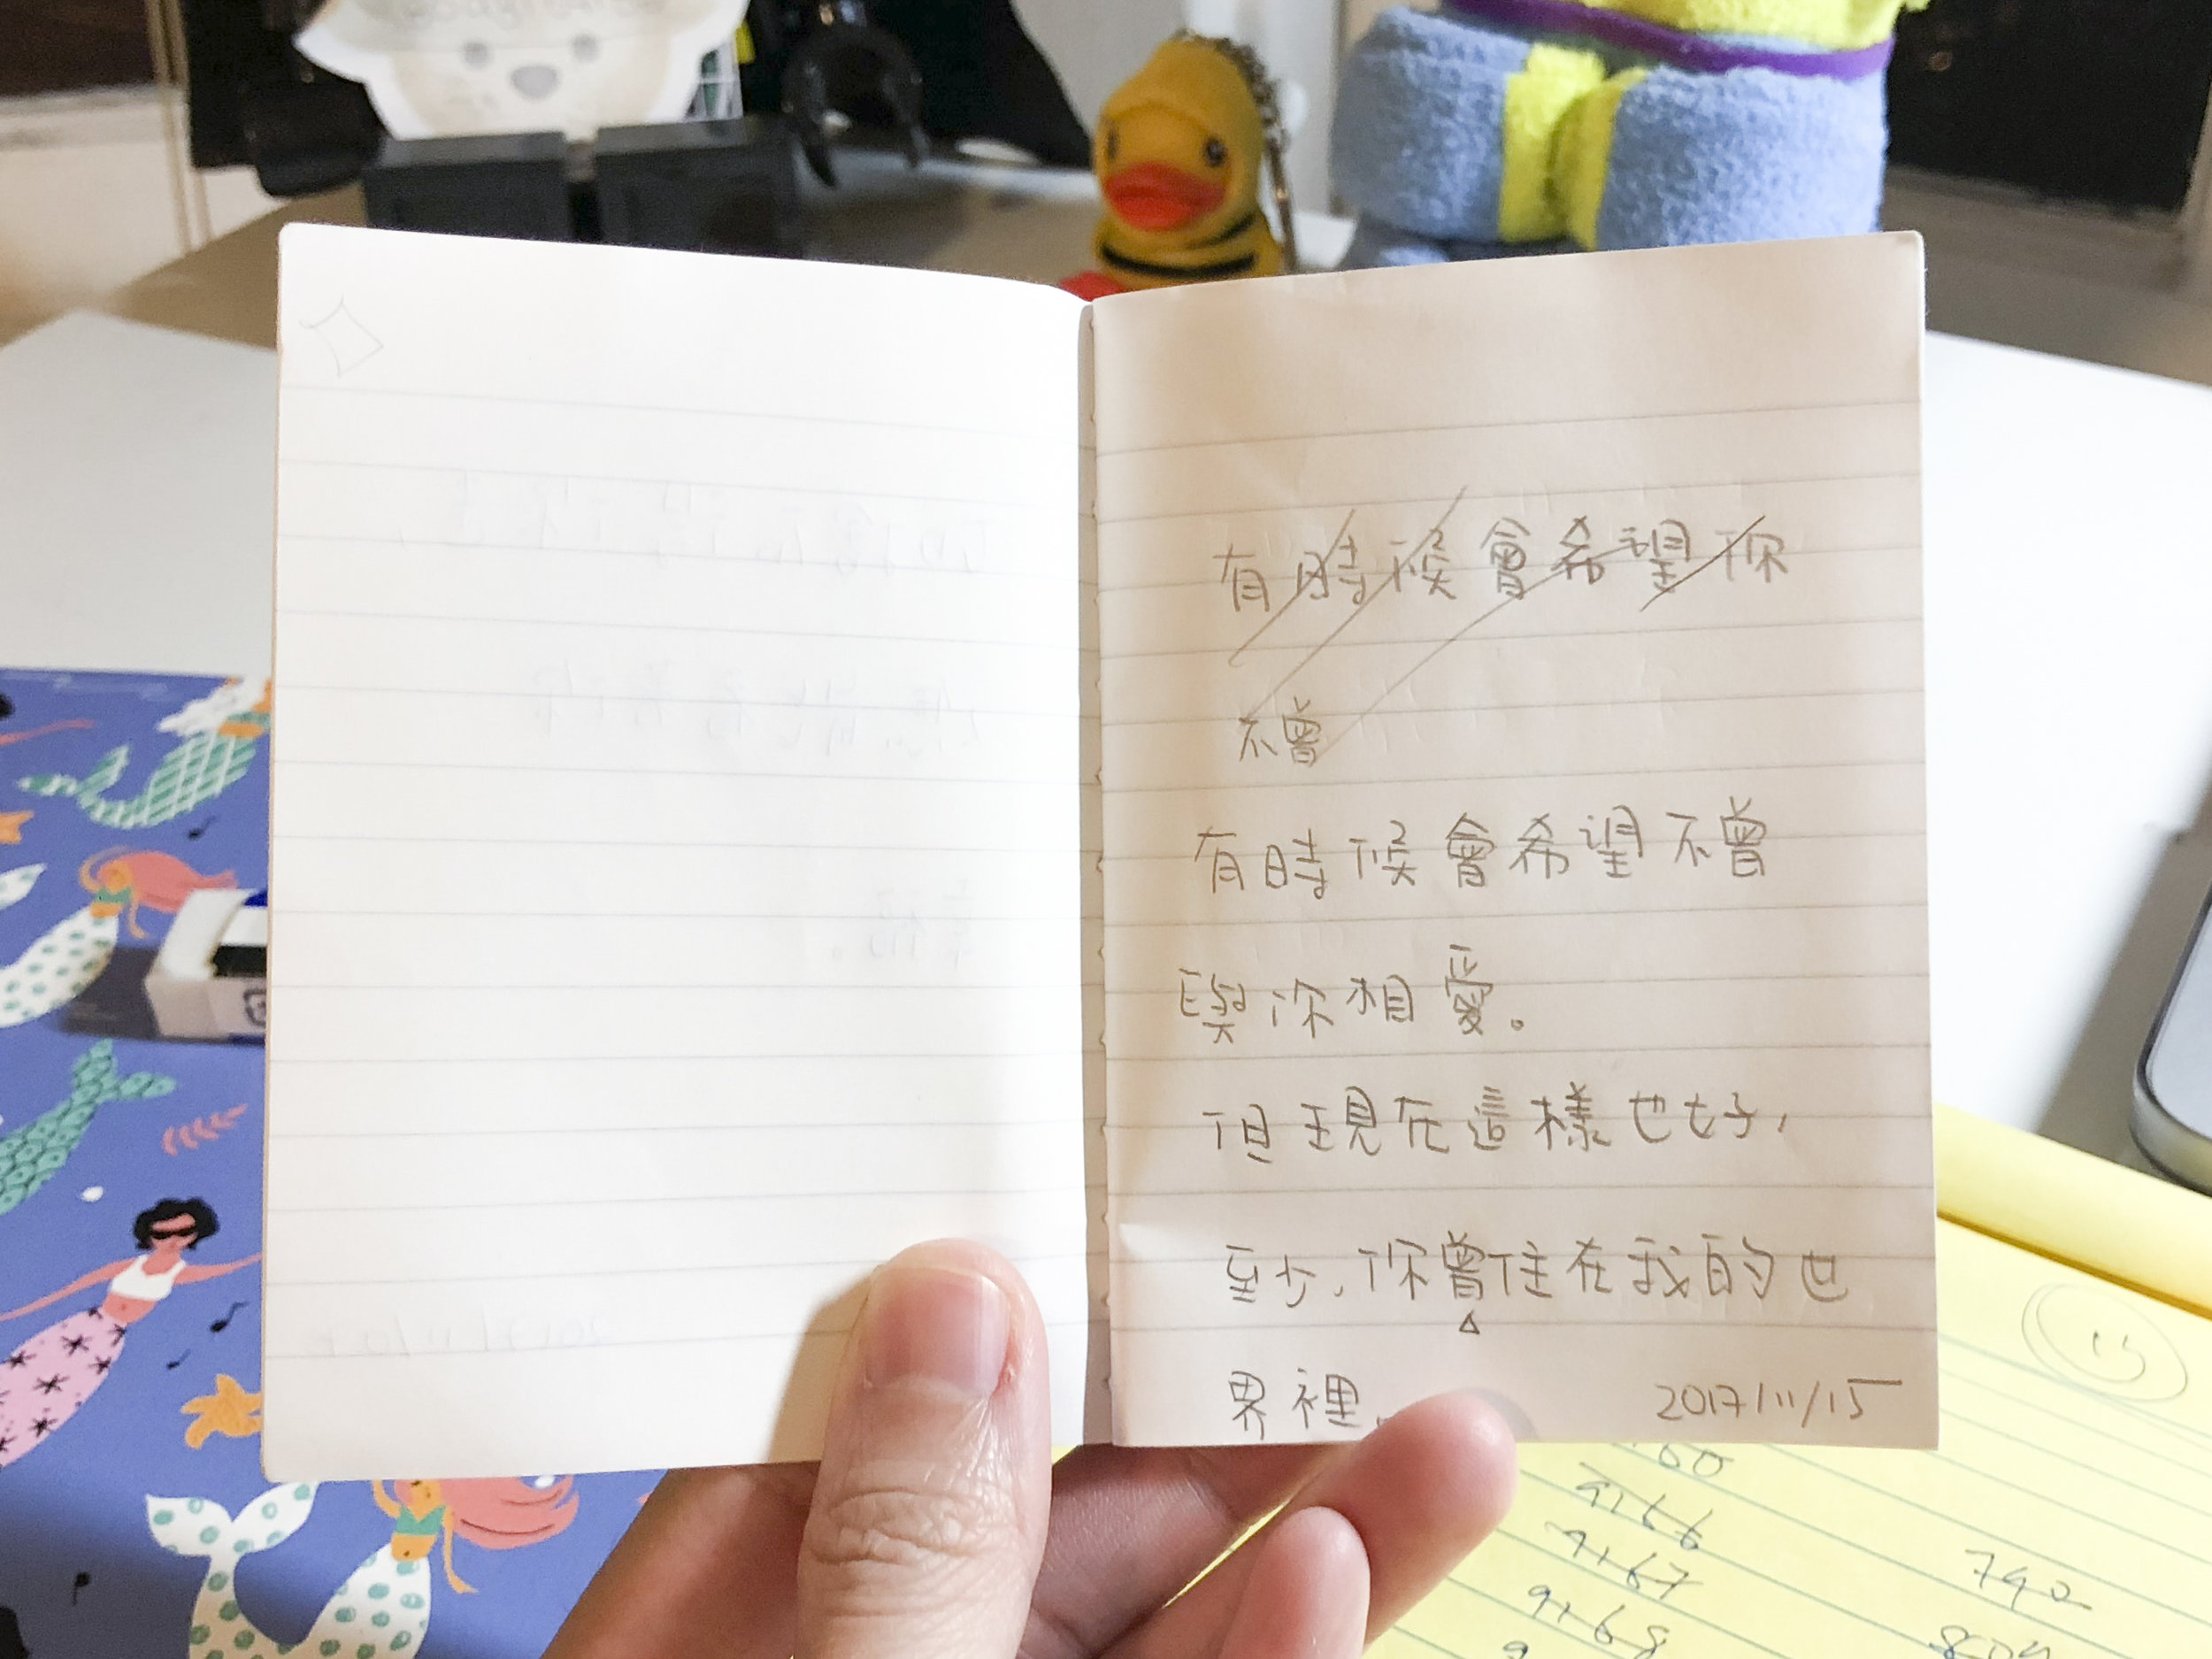 有時候會希望你
不曾
有時候會希望不曾
與你相愛。
但現在這樣也好,
至少,你曾住在我的世
界裡。
2017/11/15